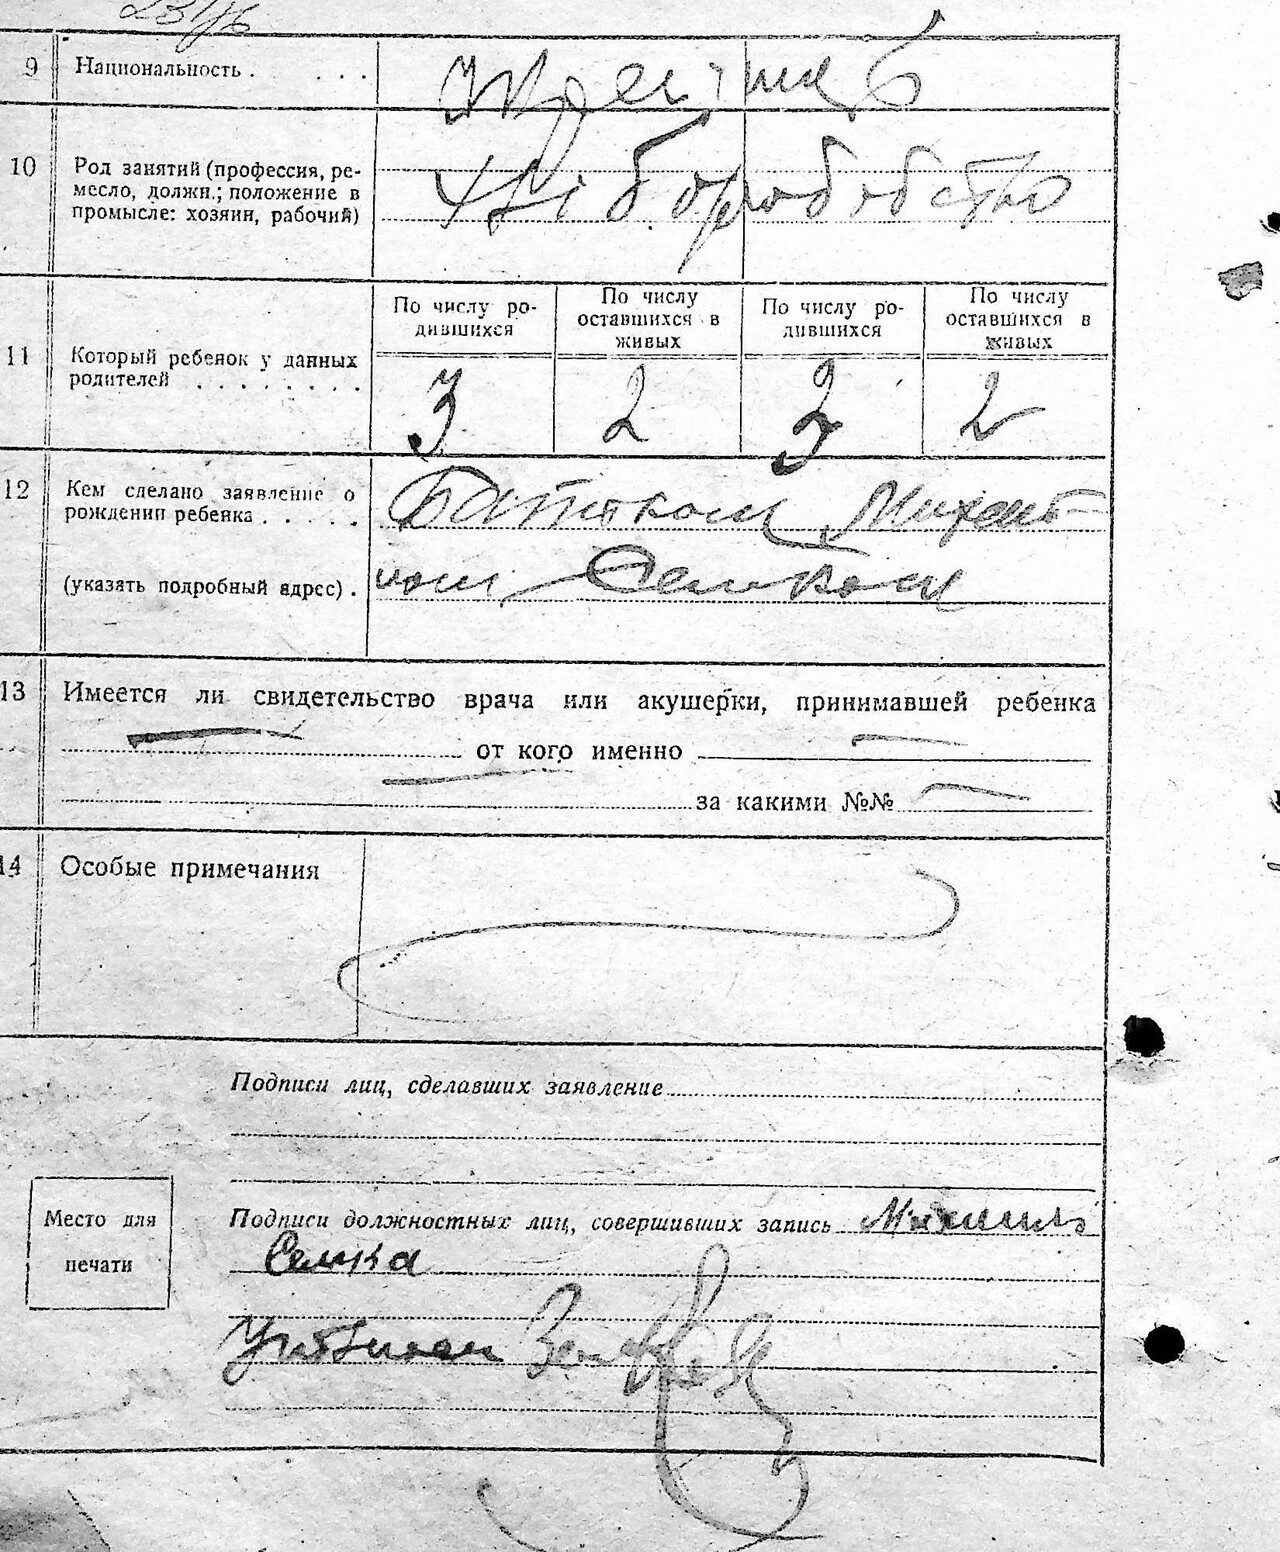 9 Национальность . . . .
українців
10 Род занятий (профессия, ре-
месло, должн.; положение в
промысле: хозяин, рабочий)
хліборобство
По числу ро-
дившихся
По числу
оставшихся в
живых
По числу ро-
дившихся
По числу
оставшихся в
живых
11 Который ребенок у данных
родителей . . . . . . . .
3 2 3 2
12 Кем сделано заявление о
рождении ребенка . . . . .
(указать подробный адрес) .
Батьком
13 Имеется ли свидетельство врача или акушерки, принимавшей ребенка
— от кого именно —
— за какими №№ —
14 Особые примечания
Подписи лиц, сделавших заявление
Место для
печати
Подписи должностных лиц, совершивших запись
Семка